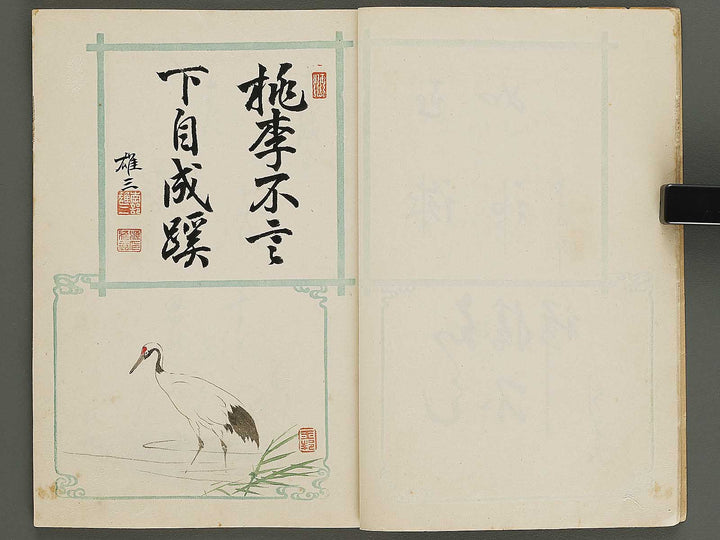 桃李不言
下自成蹊
雄三